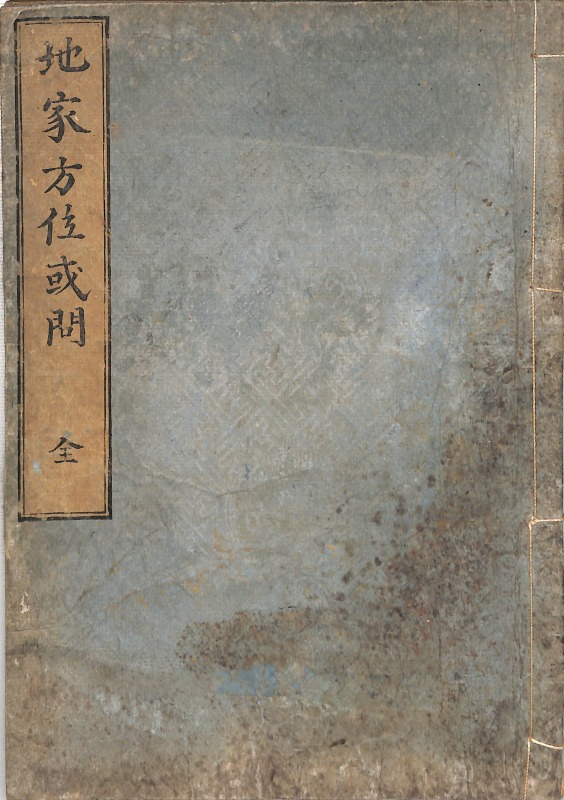 地家方位或問
全